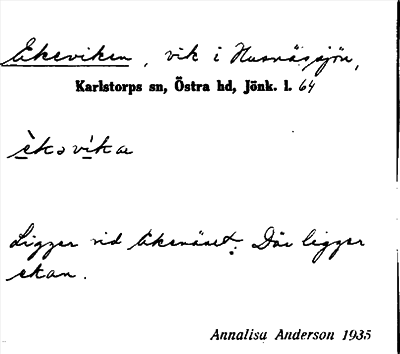 Ekeviken, vik i Husnässjön,
Karlstorps sn, Östra hd, Jönk. l. 64
èkəvíkæ
Ligger vid Ekenäset. Där ligger
ekan.
Annalisa Anderson 1935